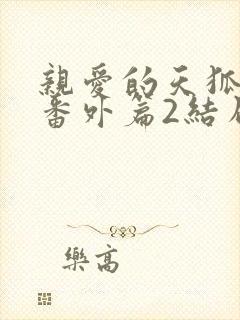 親愛的天狐
番外篇2結
樂高